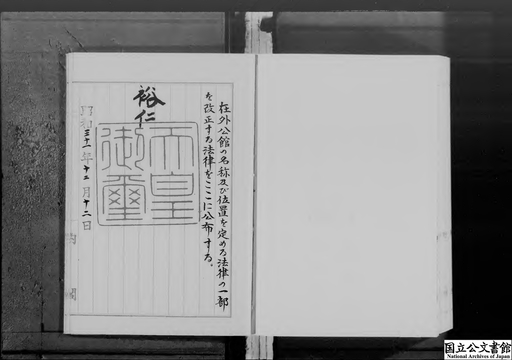 在外公館の名称及び位置を定める法律の一部
を改正する法律をここに公布する。
裕仁
天皇
御璽
昭和三十一年十二月十二日
内閣
国立公文書館
National Archives of Japan